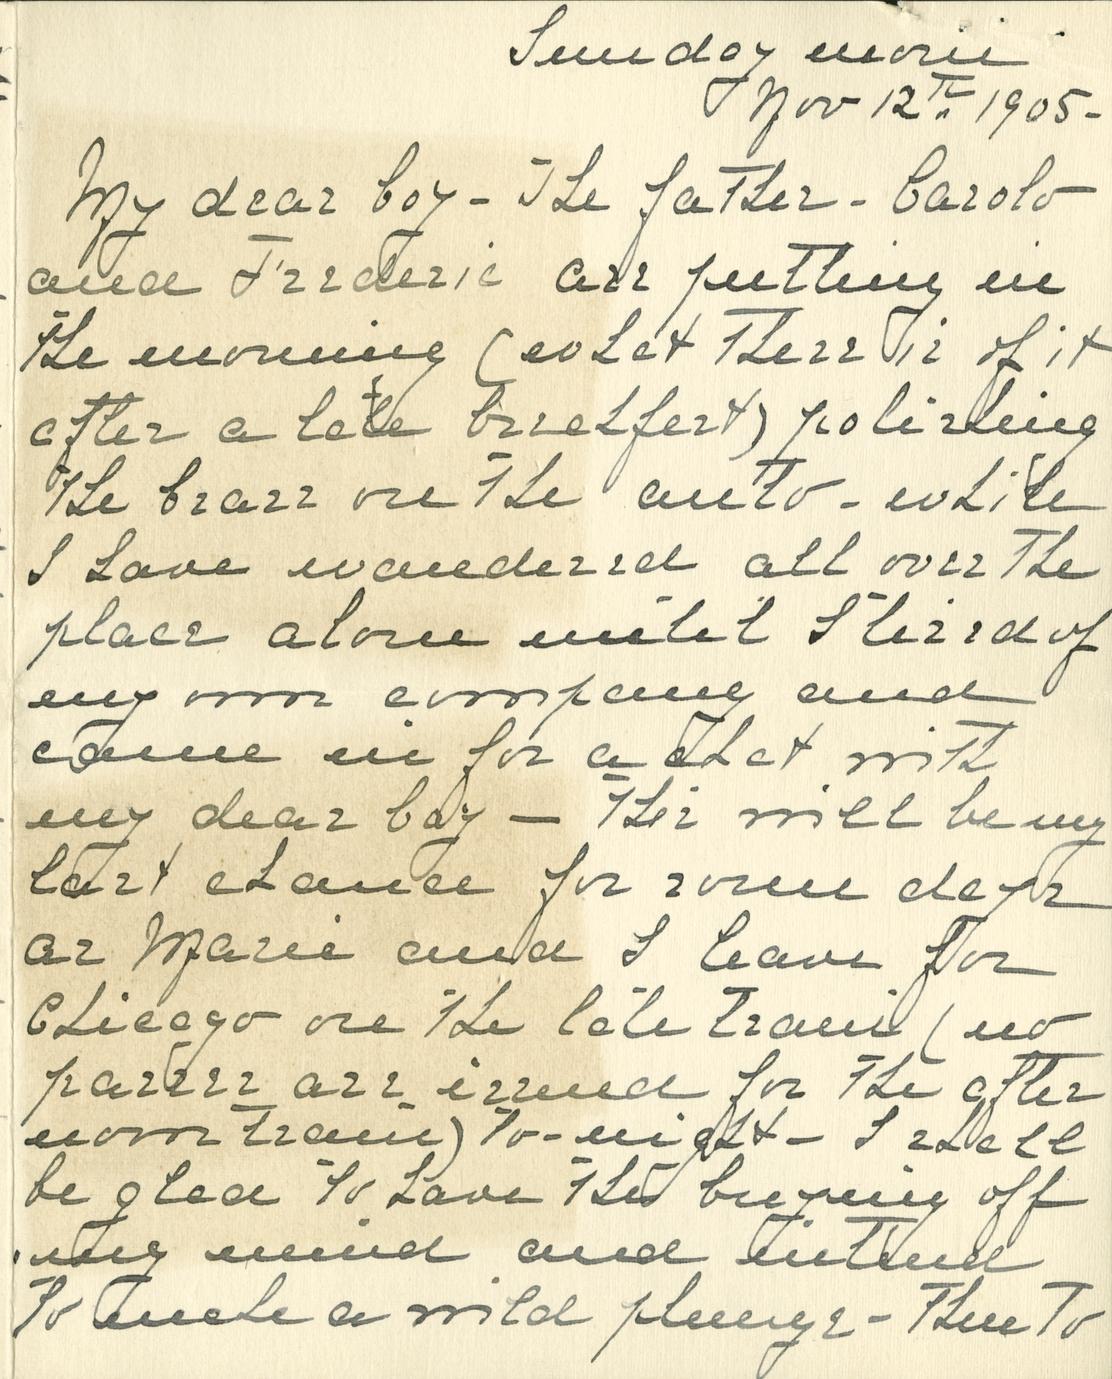 Sunday morn
Nov 12th 1905-
My dear boy - The father - Carolo
and Frederic are putting in
the morning (what there is of it
after a late breakfast) polishing
the brass on the auto - while
I have wandered all over the
place alone until I tired of
my own company and
came in for a chat with
my dear boy — This will be my
last chance for some days
as Marie and I leave for
Chicago on the late train (no
passes are issued for the after
noon train) to-night - I shall
be glad to have the buying off
my mind and intend
to make a wild plunge - then to